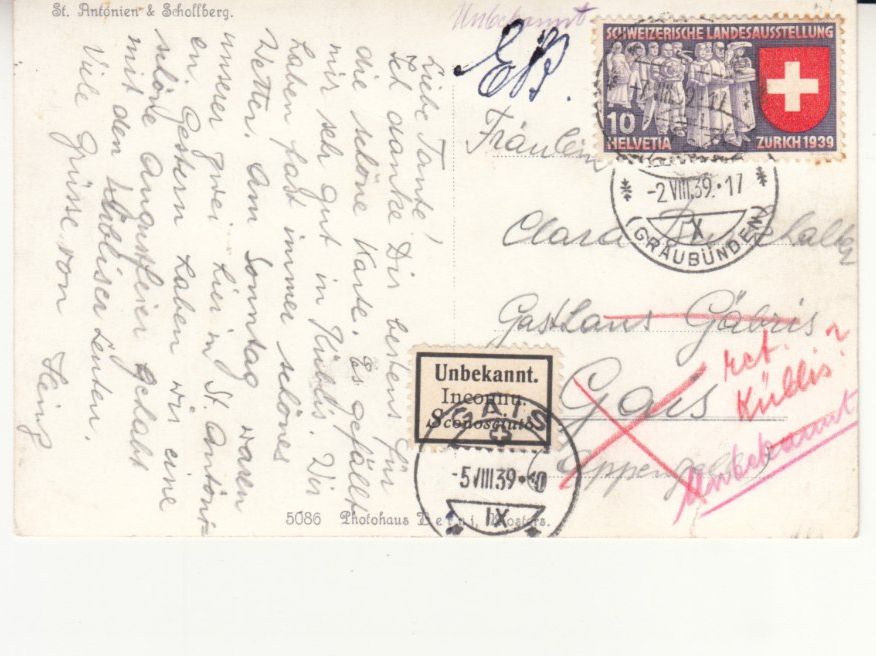 St. Antönien & Schollberg.
Liebe Tante!
Ich danke Dir bestens für
die schöne Karte. Es gefällt
mir sehr gut in Küblis. Wir
haben fast immer schönes
Wetter. Am Sonntag waren
unserer zwei hier in St. Antöni-
en. Gestern haben wir eine
schöne Augustfeier gehabt
mit den Leuten.
Viele Grüsse von
5086 Photohaus Berni, Klosters.
Unbekannt
SCHWEIZERISCHE LANDESAUSSTELLUNG
10
HELVETIA ZÜRICH 1939
-2.VIII.39.-17
IX
(GRAUBÜNDEN)
Fräulein
Clara
Gasthaus Gäbris
Gais
(Appenzell)
ret.
Küblis
Unbekannt
Unbekannt.
Inconnu.
Sconosciuto.
GAIS
-5.VIII.39.
IX